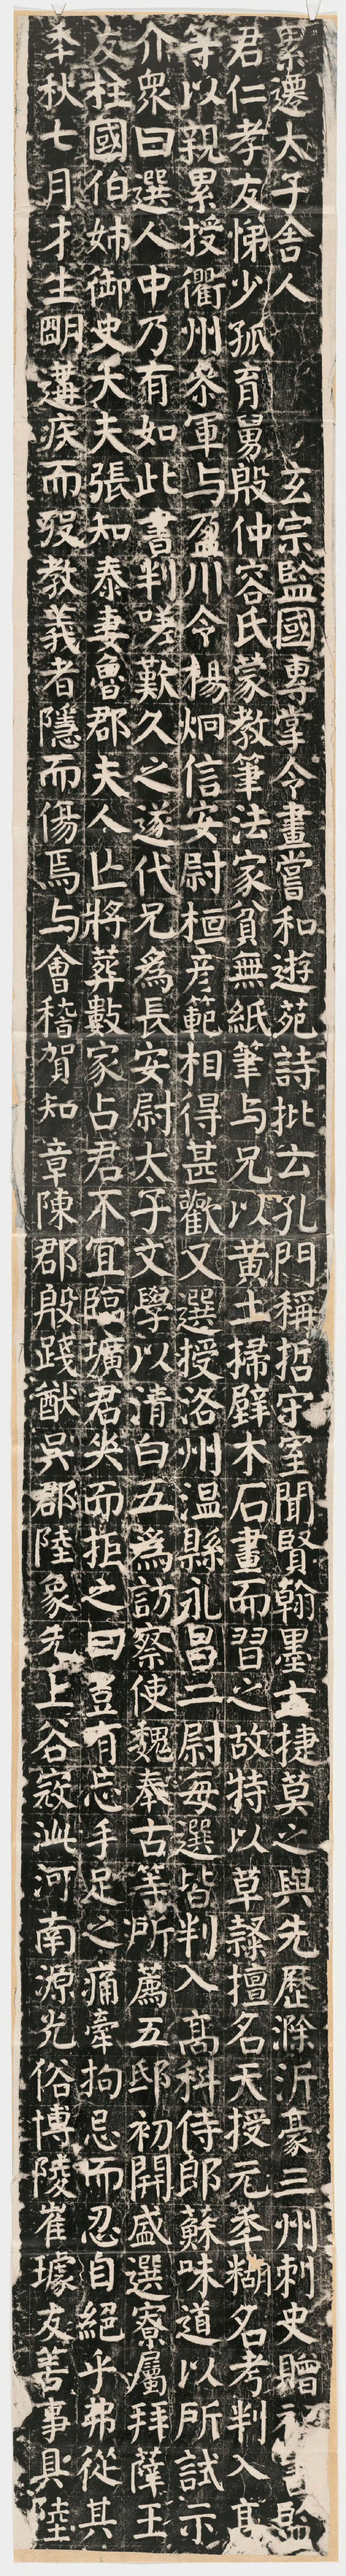 累遷太子舍人 玄宗監國專掌令畫嘗和遊苑詩批云孔門稱哲宋室聞賢翰墨云捷莫之與先歷滁沂豪三州刺史贈祕書監
君仁孝友悌少孤育舅殷仲容氏蒙教筆法家貧無紙筆与兄以黃土掃壁木石畫而習之故特以草隸擅名天授元秊糊名考判入高
等以親累授衢州叅軍与盈川令楊炯信安尉桓彦範相得甚歡又選授洛州溫縣永昌二尉每選皆判入高科侍郎蘇味道以所試示
介衆曰選人中乃有如此書判嗟歎久之遂代兄爲長安尉太子文學以清白五爲訪察使魏奉古等所薦五邸初開盛選寮屬拜薛王
友柱國伯姉御史大夫張知泰妻魯郡夫人亡將葬數家占君不宜臨壙君哭而拒之曰豈有忘手足之痛牽拘忌而忍自絕乎弗從其
秊秋七月才生明遘疾而歿教義者隱而傷焉与會稽賀知章陳郡殷踐猷吳郡陸象先上谷寇泚河南源光俗博陵崔璩友善事具陸